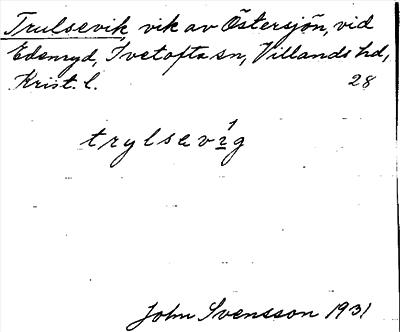 Trulsevik, vik av Östersjön, vid
Edenryd, Ivetofta sn, Villands hd,
Krist. l. 28
trylseví̱g
John Svensson 1931